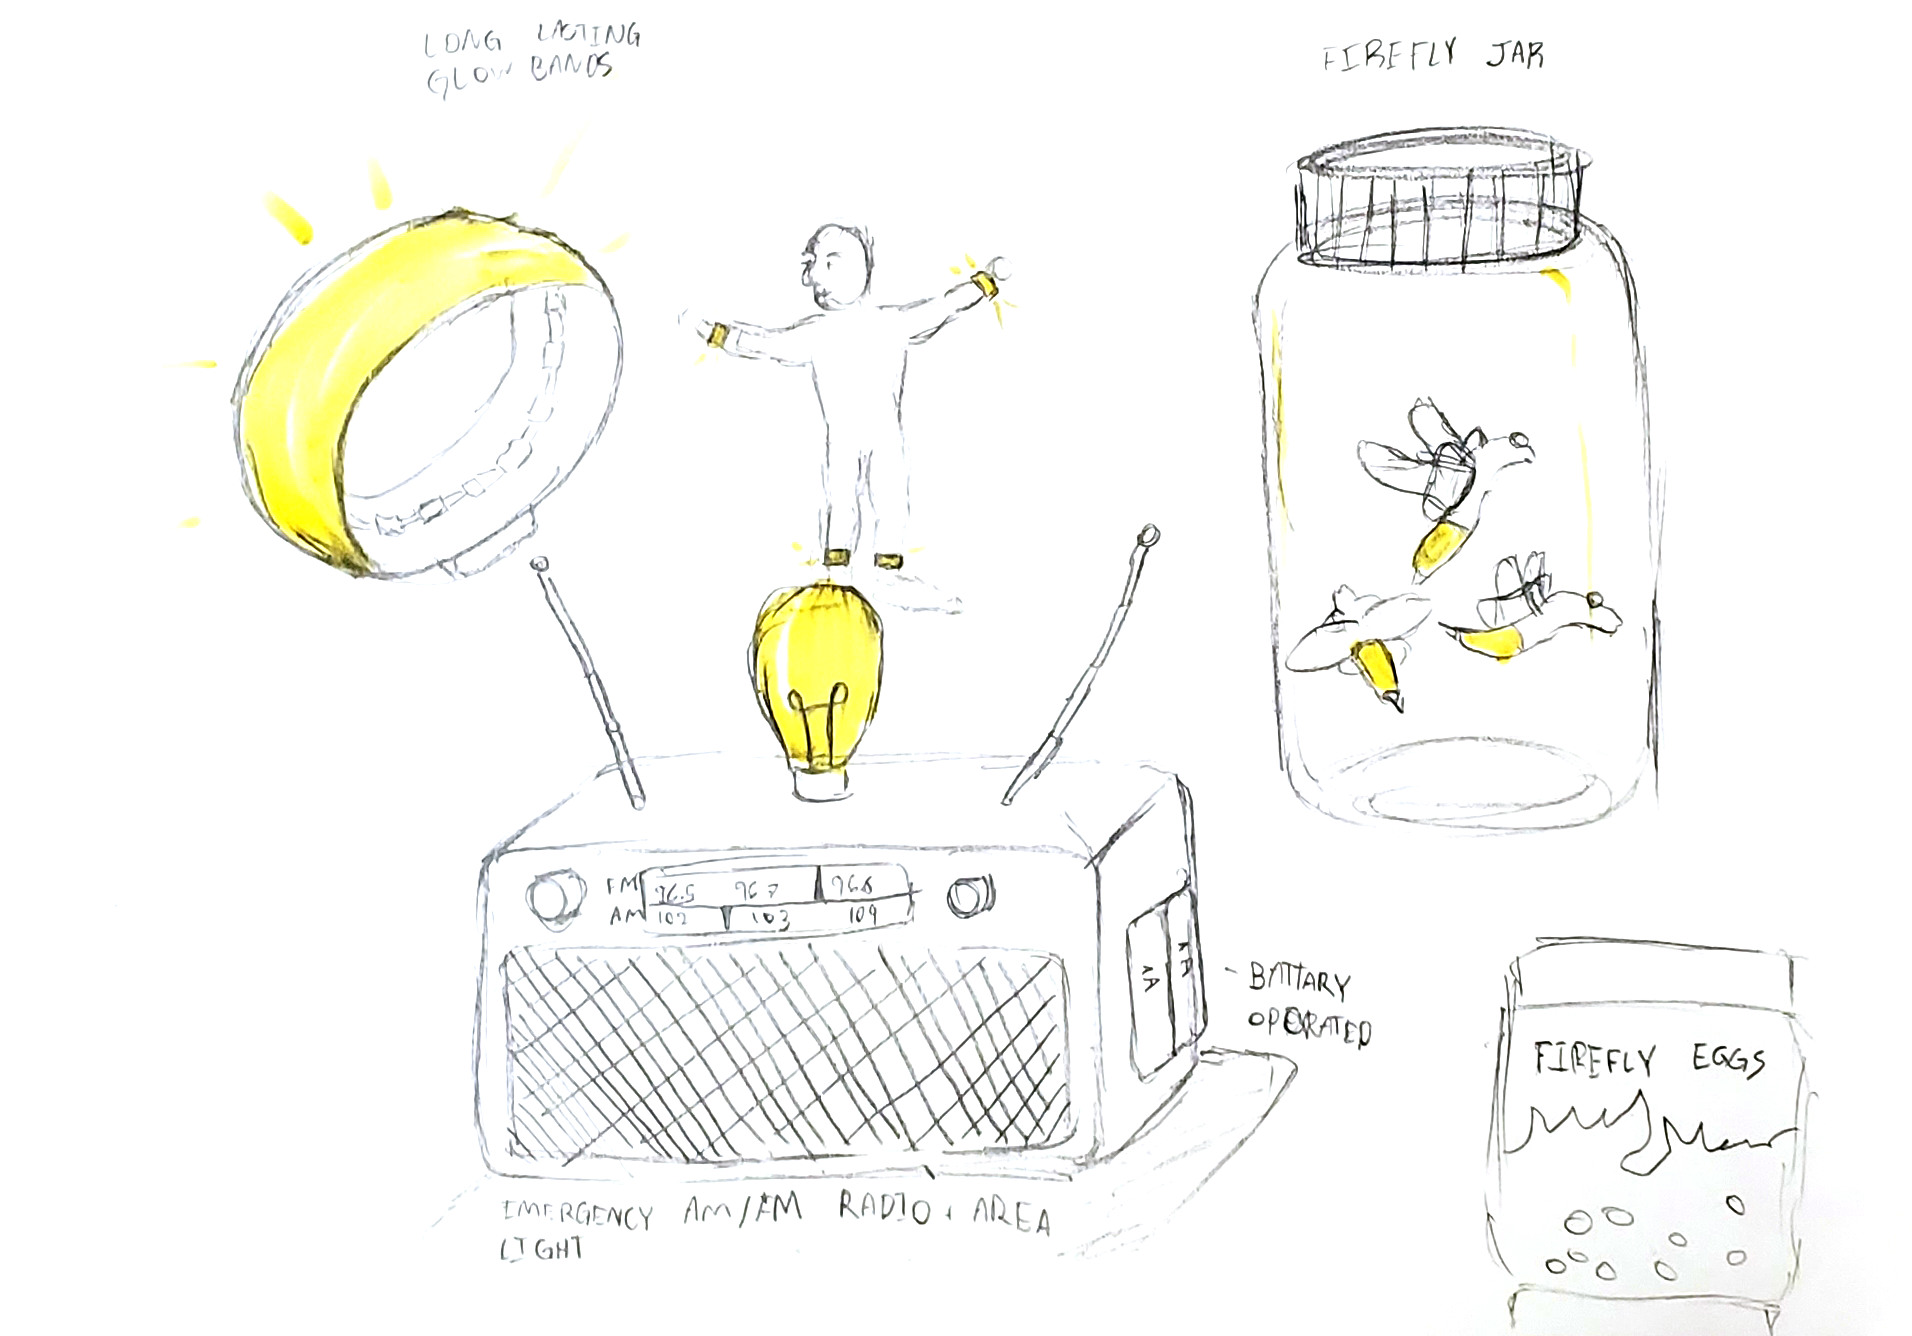 LONG LASTING
GLOW BANDS
FIREFLY JAR
FM 96.5 96.7 96.8
AM 102 103 109
AA
AA
- BATTARY
OPERATED
FIREFLY EGGS
EMERGENCY AM/FM RADIO + AREA
LIGHT